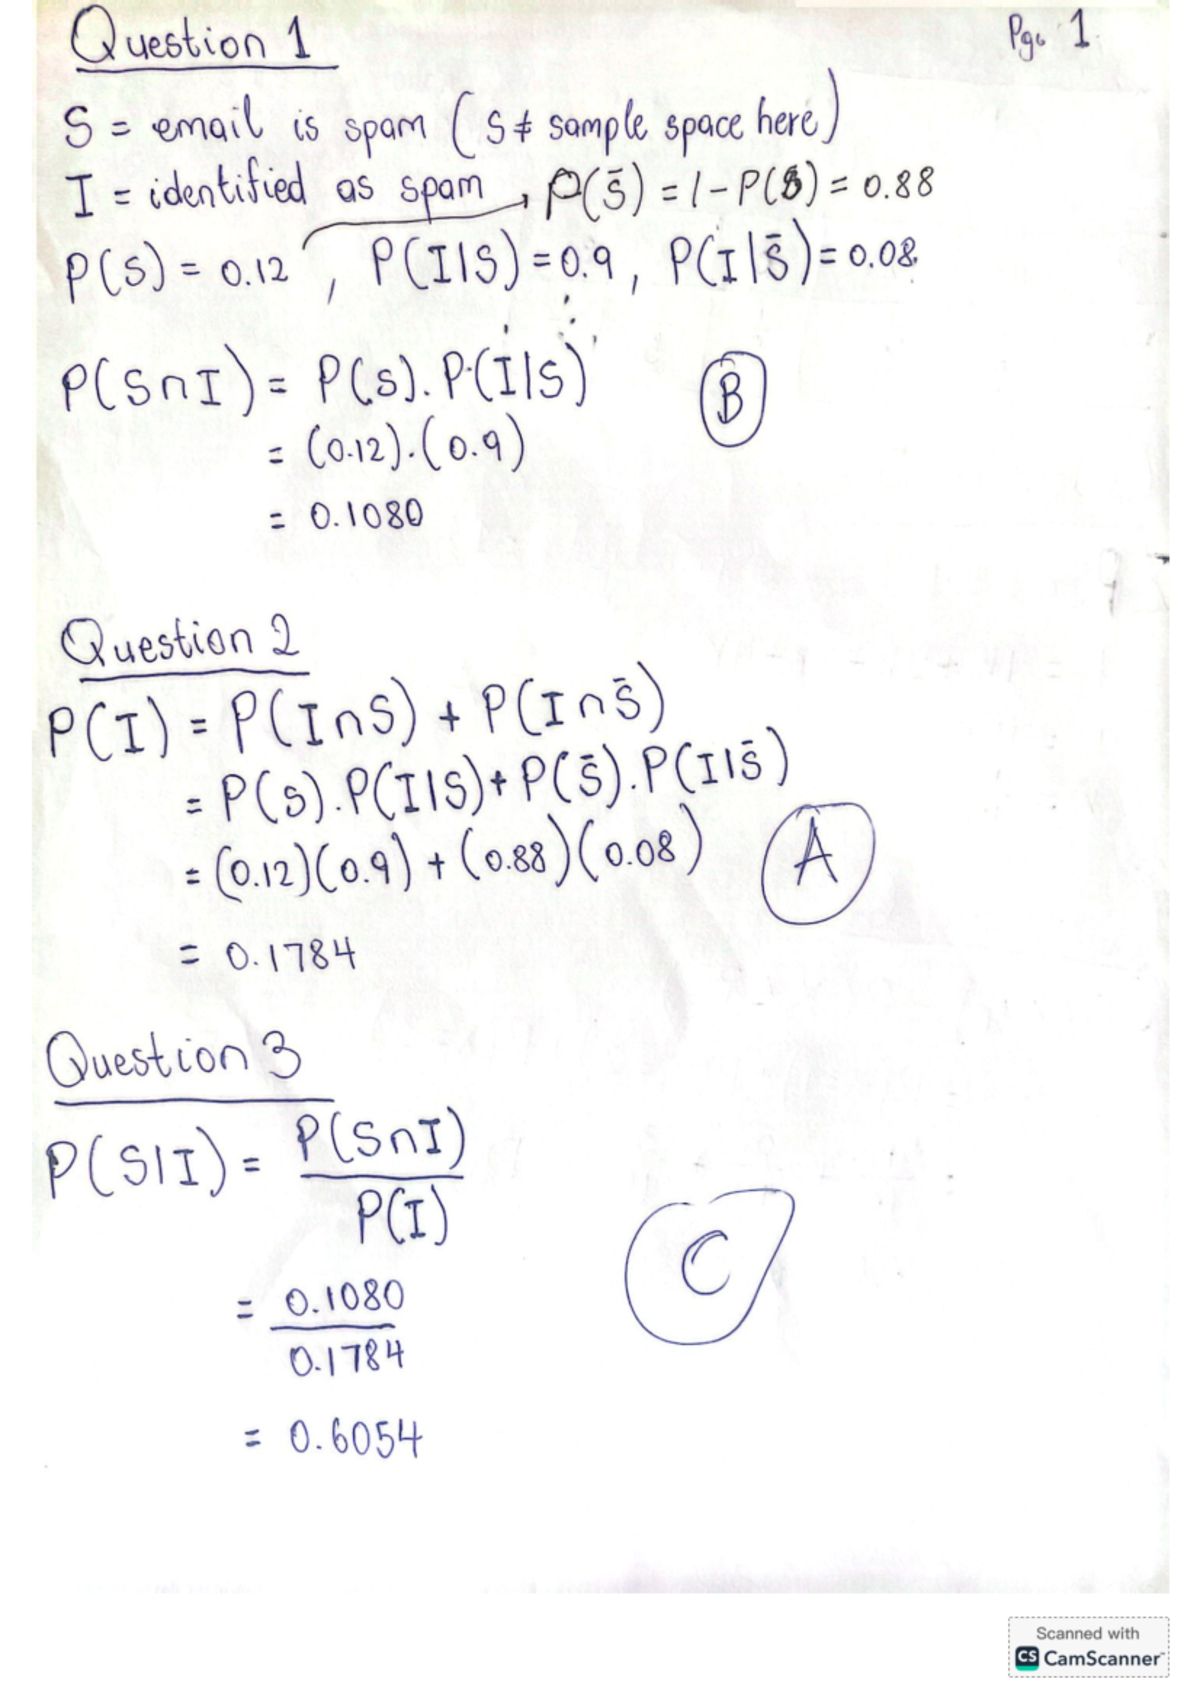 Question 1
Pg. 1
S = email is spam (S ≠ sample space here)
I = identified as spam, P(S̄) = 1 - P(S) = 0.88
P(S) = 0.12, P(I|S) = 0.9, P(I|S̄) = 0.08
P(S∩I) = P(S). P(I|S)
B
= (0.12).(0.9)
= 0.1080
Question 2
P(I) = P(I∩S) + P(I∩S̄)
= P(S).P(I|S) + P(S̄).P(I|S̄)
= (0.12)(0.9) + (0.88)(0.08)
A
= 0.1784
Question 3
P(S|I) = P(S∩I)
P(I)
C
= 0.1080
0.1784
= 0.6054
Scanned with
CS CamScanner